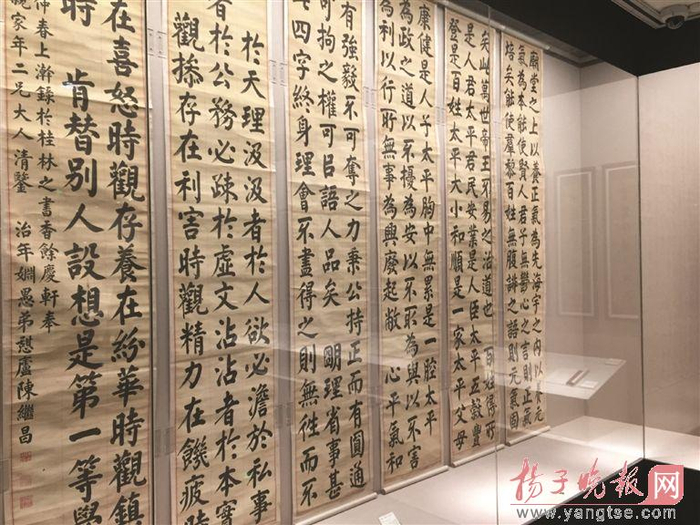 廟堂之上以養正氣為先海宇之內以養元
氣為本能使賢人君子無鬱心之言則正氣
培矣能使羣黎百姓無腹誹之語則元氣固
矣此萬世帝王不易之治道也 百姓得所
是人君太平君民安業是人臣太平五穀豐
登是百姓太平大小和順是一家太平父母
康健是人子太平胸中無累是一腔太平
為政之道以不擾為安以不取為與以不害
為利以行所無事為興廢起敝 心平氣和
有強毅不可奪之力秉公持正而有圓通
可拘之權可㠯語人品矣 明理省事甚
四字終身理會不盡得之則無往而不
於天理汲汲者於人欲必澹於私事
於公務必疎於虛文沾沾者於本實
觀操存在利害時觀精力在饑疲時
在喜怒時觀存養在紛華時觀鎮
時 肯替別人設想是第一等學
仲春上澣錄於桂林之書香餘慶軒奉
親家年二兄大人清鑒 治年姻愚弟慭廬陳繼昌
揚子晚報网
www.yangtse.com